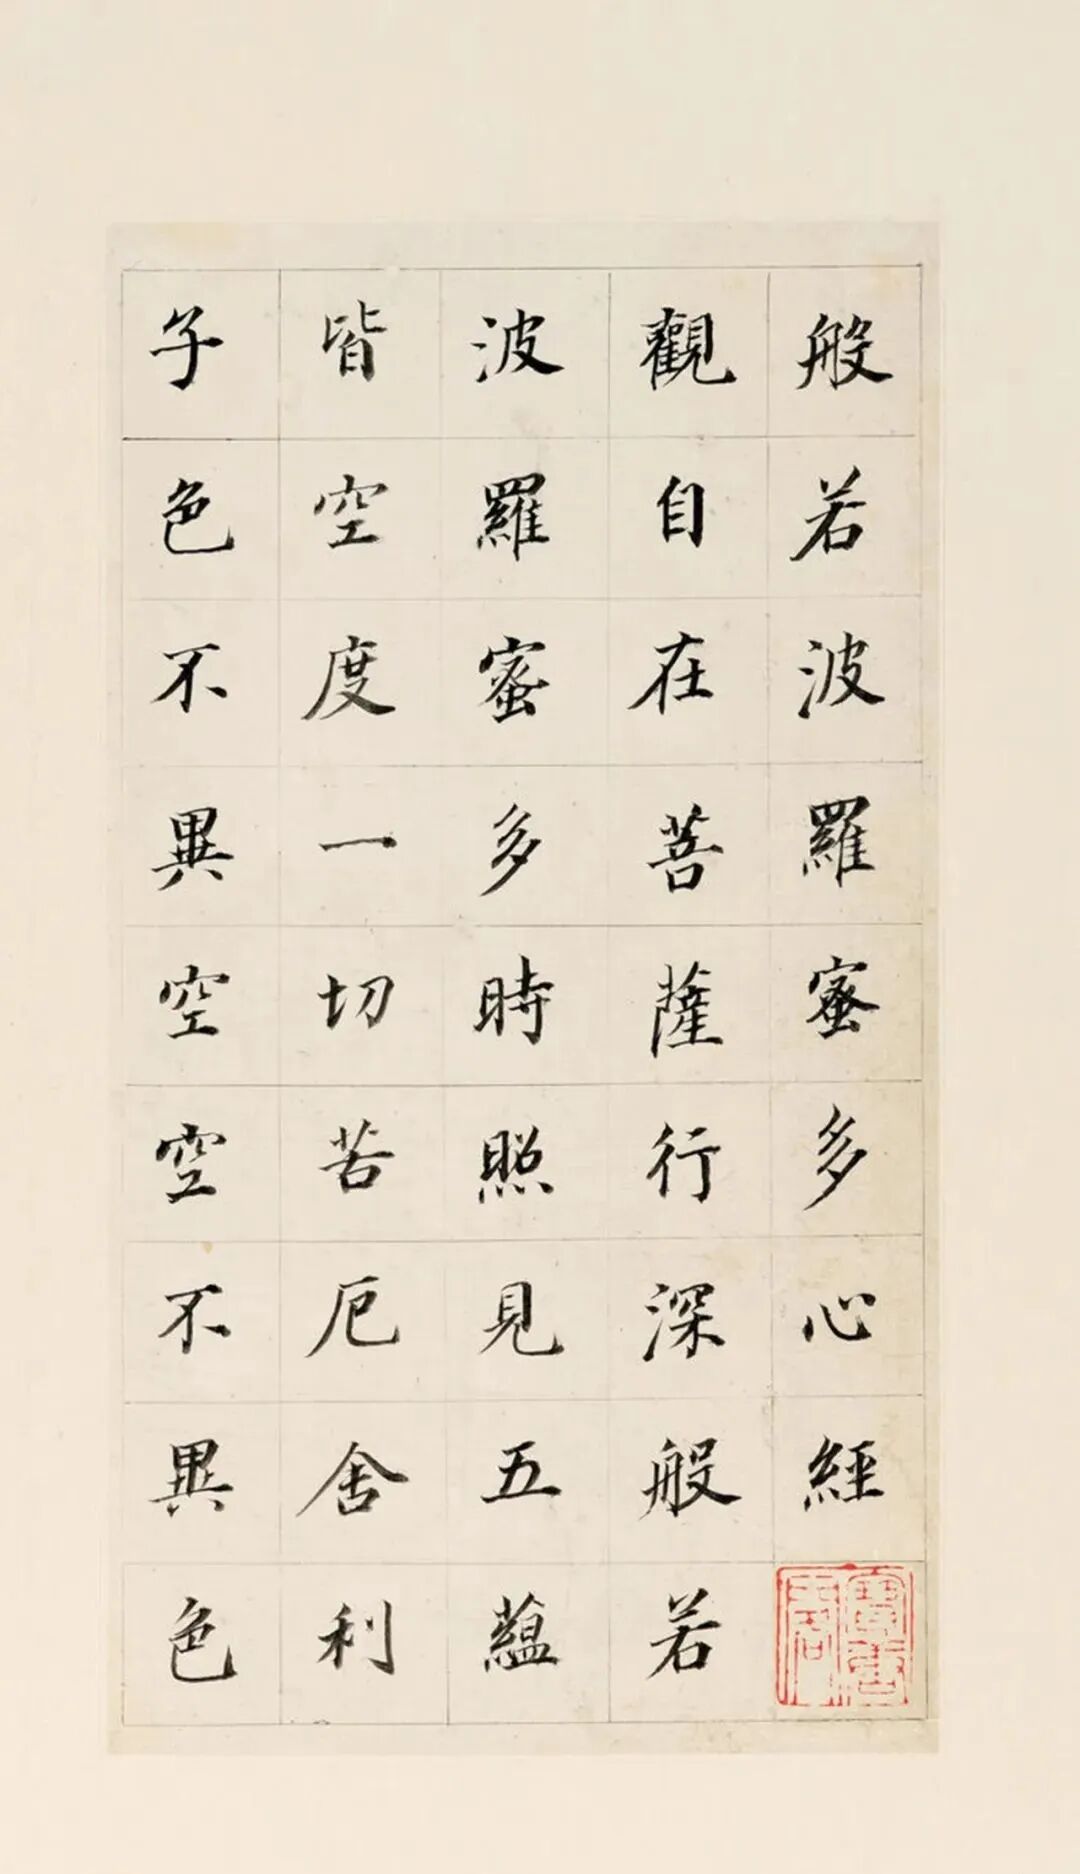 般若波羅蜜多心經
觀自在菩薩行深般若
波羅蜜多時照見五蘊
皆空度一切苦厄舍利
子色不異空空不異色